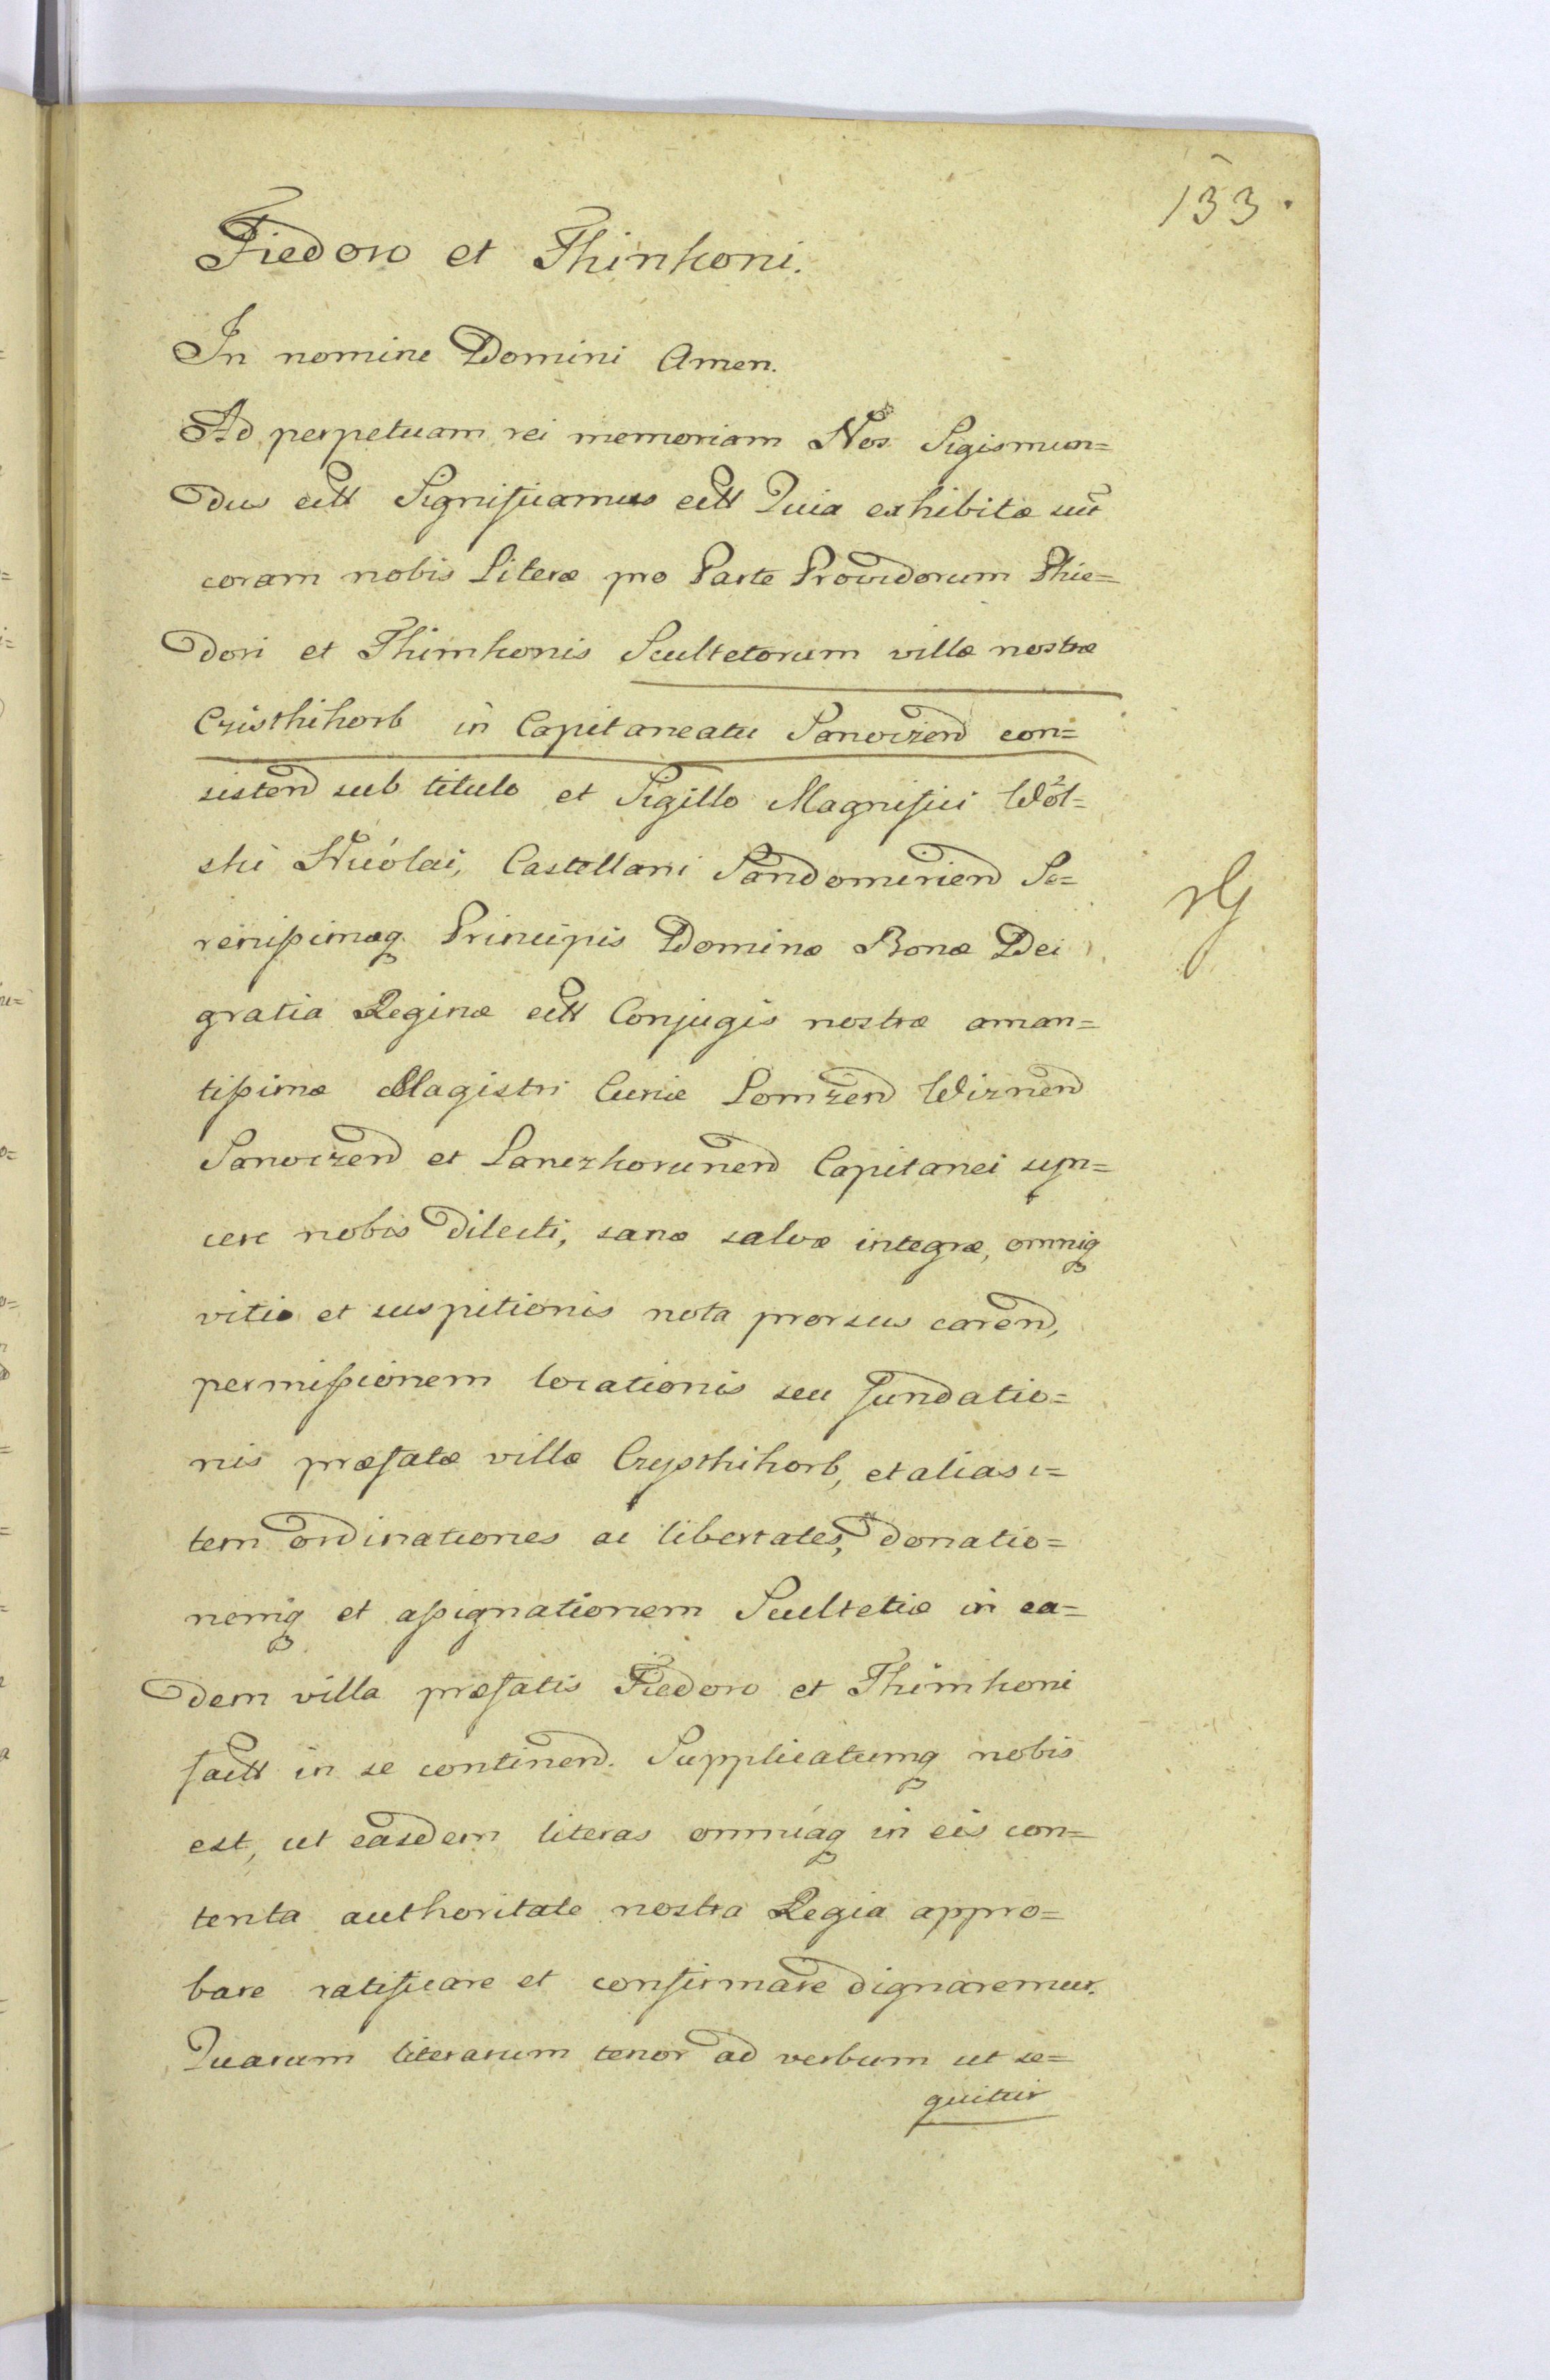 133.
Fiedoro et Thimkoni.
In nomine Domini Amen.
Ad perpetuam rei memoriam Nos Sigismun=
dus ectt Significamus ectt Quia exhibitæ sūt
coram nobis Literæ pro Parte Providorum Phie=
dori et Thimkonis Scultetorum villæ nostræ
Czisthihorb in Capitaneatu Sanocżen̄ con=
sisten̄ sub titulo et Sigillo Magnifici Wol=
ski Nicolai, Castellani Sandomirien̄ Se=
renißimæq Principis Dominæ Bonæ Dei
gratia Reginæ ectt Conjugis nostræ aman=
tißimæ Magistri Curiæ Lomżen̄ Wiznen̄
Sanoczen̄ et Lanczkorunen̄ Capitanei syn=
cere nobis dilecti, sanæ salvæ integræ, omniq
vitio et suspitionis nota prorsus caren̄,
permißionem locationis seu fundatio=
nis præfatæ villæ Czysthihorb, et alias i=
tem ordinationes ac libertates, donatio=
nemq et aßignationem Scultetiæ in ea=
dem villa præfatis Fiedoro et Thimkoni
factt in se continen̄. Supplicatumq nobis
est, ut easdem literas omniaq in eis con=
tenta authoritate nostra Regia appro=
bare ratificare et confirmare dignaremur.
Quarum literarum tenor ad verbum ut se=
quitur